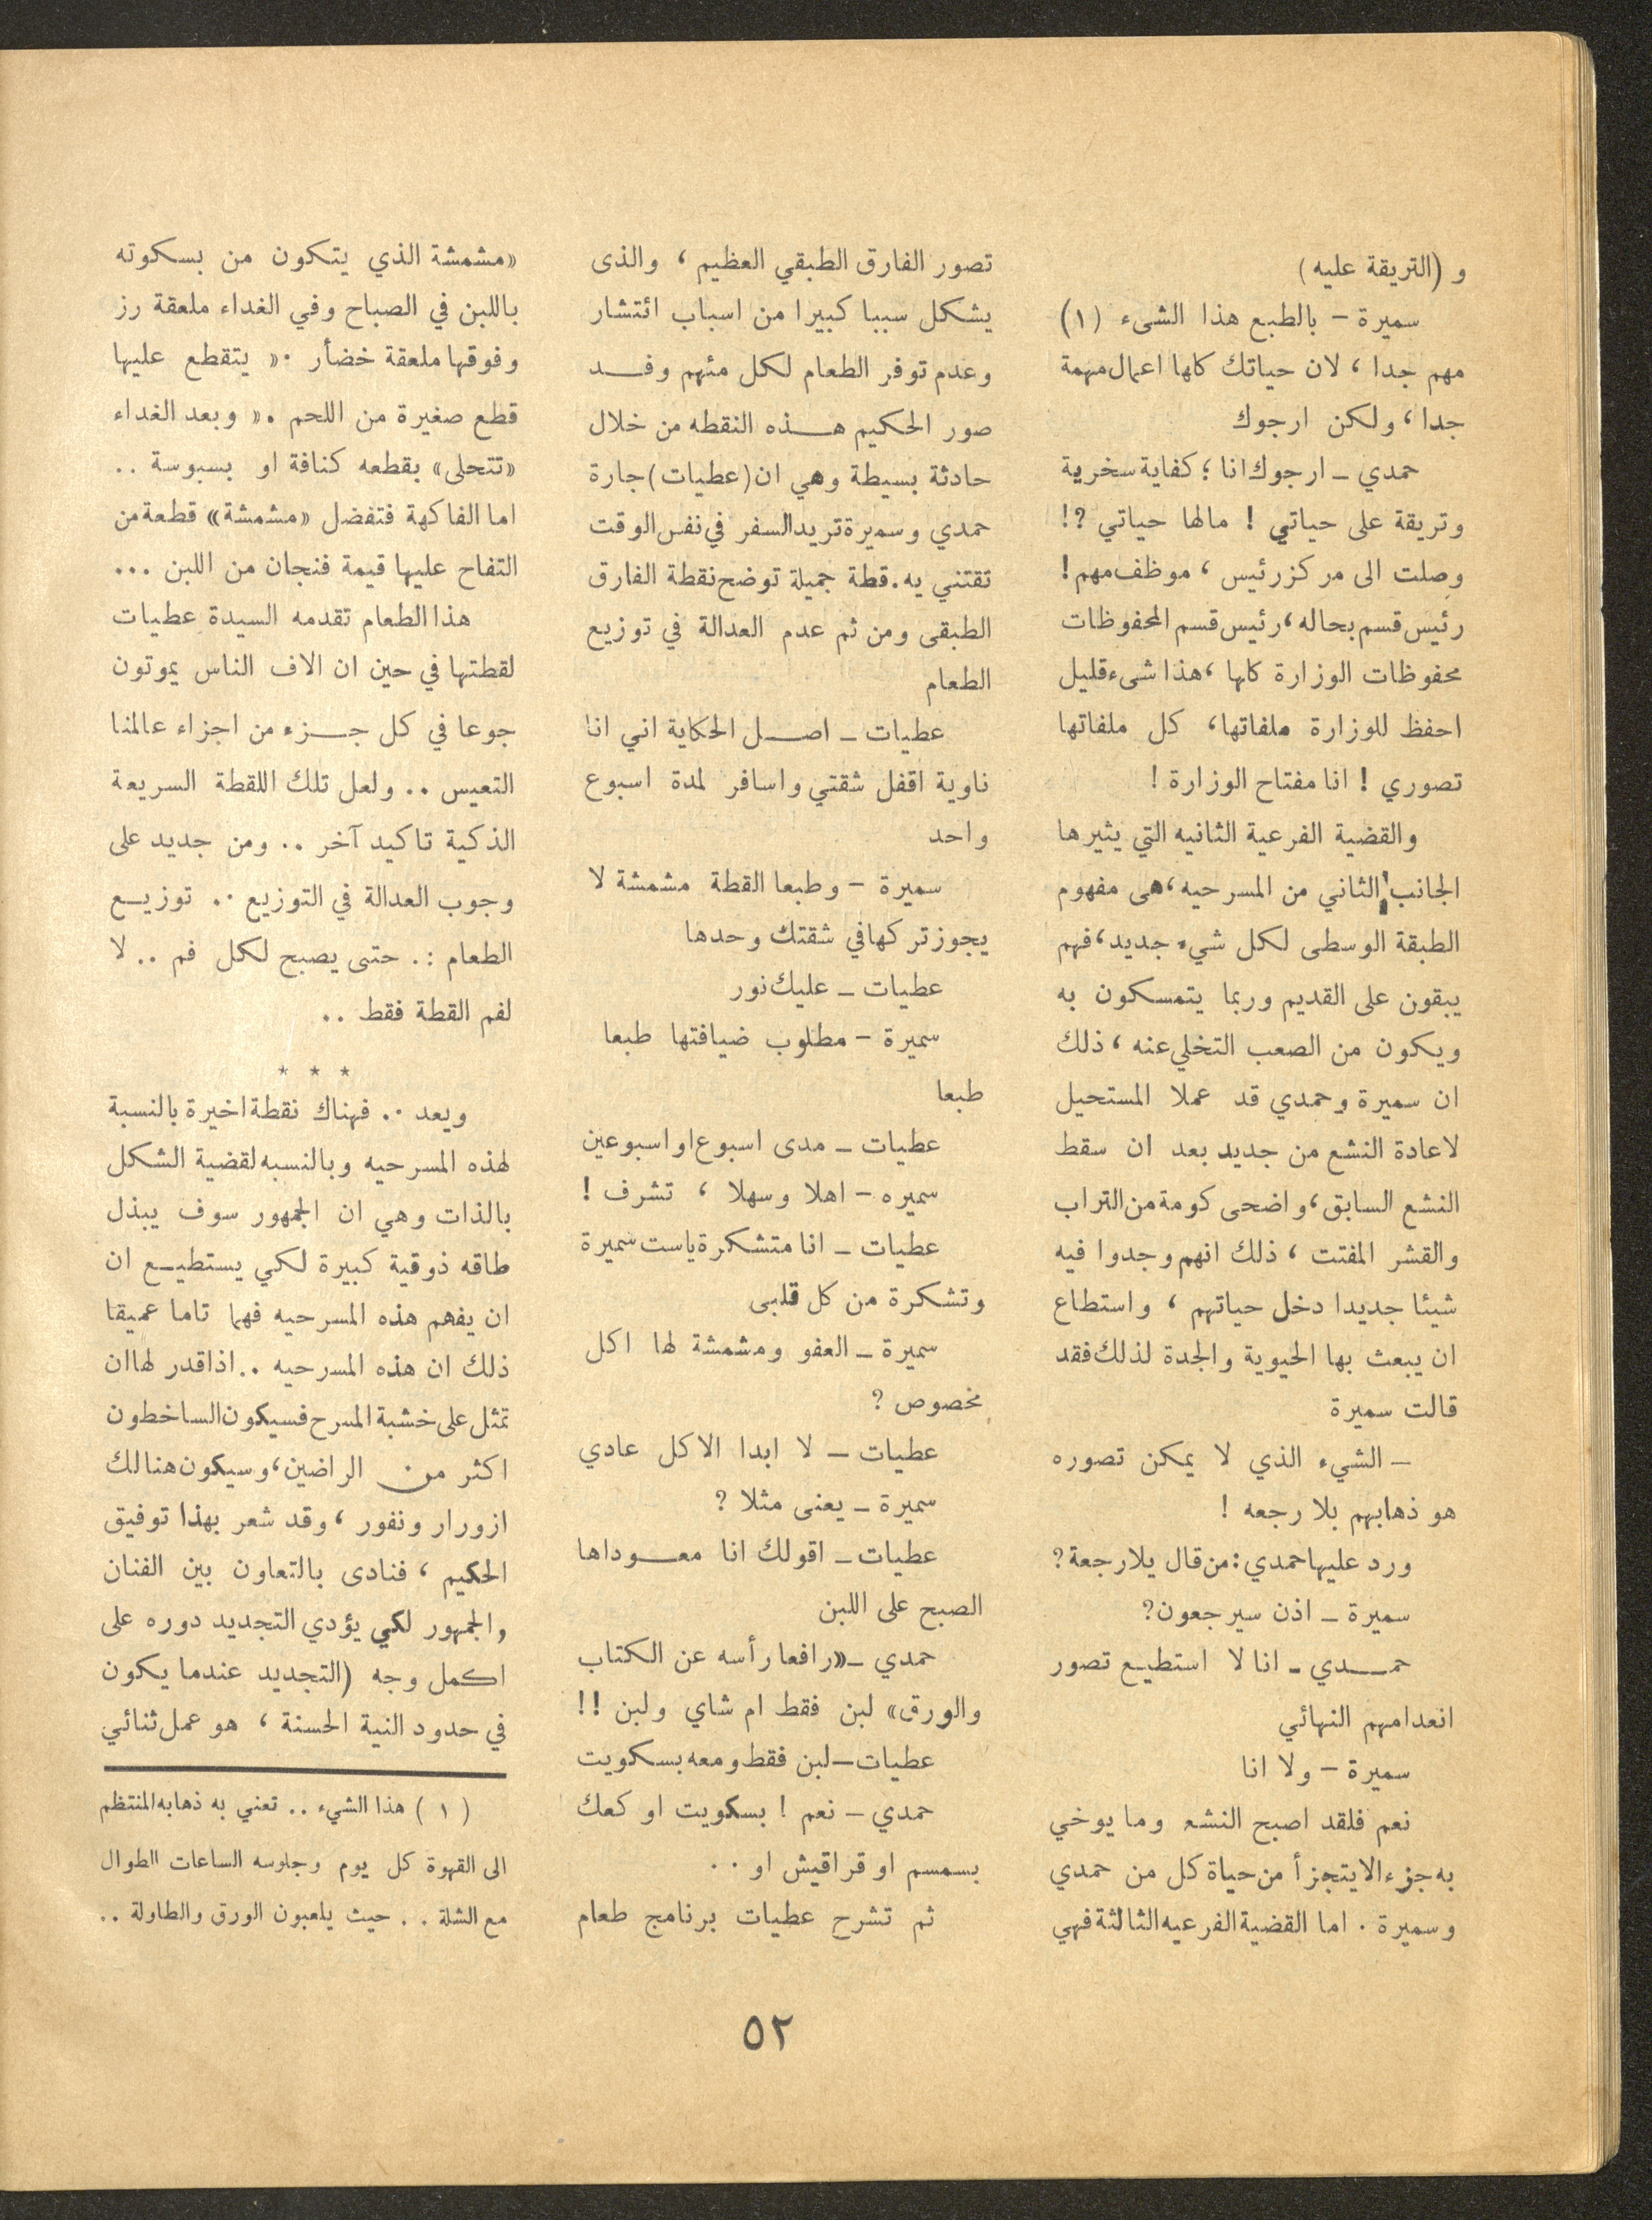 و (التريقة عليه)
سميرة – بالطبع هذا الشىء (١)
مهم جدا ، لان حياتك كلها اعمال مهمة
جدا ، ولكن ارجوك
حمدي – ارجوك انا ؛ كفاية سخرية
وتريقة على حياتي ! مالها حياتي ؟!
وصلت الى مركز رئيس ، موظف مهم !
رئيس قسم بحاله ، رئيس قسم المحفوظات
محفوظات الوزارة كلها ، هذا شىء قليل
احفظ للوزارة ملفاتها ، كل ملفاتها
تصوري ! انا مفتاح الوزارة !
والقضية الفرعية الثانيه التي يثيرها
الجانب الثاني من المسرحيه ، هى مفهوم
الطبقة الوسطى لكل شيء جديد ، فهم
يبقون على القديم وربما يتمسكون به
ويكون من الصعب التخلي عنه ، ذلك
ان سميرة وحمدي قد عملا المستحيل
لاعادة النشع من جديد بعد ان سقط
النشع السابق ، واضحى كومة من التراب
والقشر المفتت ، ذلك انهم وجدوا فيه
شيئا جديدا دخل حياتهم ، واستطاع
ان يبعث بها الحيوية والجدة لذلك فقد
قالت سميرة
– الشيء الذي لا يمكن تصوره
هو ذهابهم بلا رجعه !
ورد عليها حمدي : من قال يلا رجعة ؟
سميرة – اذن سيرجعون ؟
حمـــدي – انا لا استطيع تصور
انعدامهم النهائي
سميرة – ولا انا
نعم فلقد اصبح النشع وما يوخي
به جزءا لا يتجزأ من حياة كل من حمدي
وسميرة . اما القضية الفرعيه الثالثة فهي
تصور الفارق الطبقي العظيم ، والذى
يشكل سببا كبيرا من اسباب ائتشار
وعدم توفر الطعام لكل مئهم وفـــد
صور الحكيم هـــذه النقطه من خلال
حادثة بسيطة وهي ان (عطيات) جارة
حمدي وسميرة تريد السفر في نفس الوقت
تقتني يه . قطة جميلة توضح نقطة الفارق
الطبقى ومن ثم عدم العدالة في توزيع
الطعام
عطيات – اصـــل الحكاية اني انا
ناوية اقفل شقتي واسافر لمدة اسبوع
واحد
سميرة – وطبعا القطة مشمشة لا
يجوز تركها في شقتك وحدها
عطيات – عليك نور
سميرة – مطلوب ضيافتها طبعا
طبعا
عطيات – مدى اسبوع او اسبوعين
سميره – اهلا وسهلا ، تشرف !
عطيات – انا متشكرة ياست سميرة
وتشكرة من كل قلبى
سميرة – العفو ومشمشة لها اكل
مخصوص ؟
عطيات – لا ابدا الاكل عادي
سميرة – يعنى مثلا ؟
عطيات – اقولك انا معـــوداها
الصبح على اللبن
حمدي – «رافعا رأسه عن الكتاب
والورق» لبن فقط ام شاي ولبن !!
عطيات – لبن فقط ومعه بسكويت
حمدي – نعم ! بسكويت او كعك
بسمسم او قراقيش او ..
ثم تشرح عطيات برنامج طعام
«مشمشة الذي يتكون من بسكوته
باللبن في الصباح وفي الغداء ملعقة رز
وفوقها ملعقة خضأر .« يتقطع عليها
قطع صغيرة من اللحم .« وبعد الغداء
«تتحلى» بقطعه كنافة او بسبوسة ..
اما الفاكهة فتفضل «مشمشة» قطعة من
التفاح عليها قيمة فنجان من اللبن ...
هذا الطعام تقدمه السيدة عطيات
لقطتها في حين ان الاف الناس يموتون
جوعا في كل جـــزء من اجزاء عالمنا
التعيس .. ولعل تلك اللقطة السريعة
الذكية تاكيد آخر .. ومن جديد على
وجوب العدالة في التوزيع .. توزيــع
الطعام :. حتى يصبح لكل فم .. لا
لفم القطة فقط ..
* * *
وبعد .. فهناك نقطة اخيرة بالنسبة
لهذه المسرحيه وبالنسبه لقضية الشكل
بالذات وهي ان الجمهور سوف يبذل
طاقه ذوقية كبيرة لكي يستطيــع ان
ان يفهم هذه المسرحيه فهما تاما عميقا
ذلك ان هذه المسرحيه .. اذا قدر لها ان
تمثل على خشبة المسرح فسيكون الساخطون
اكثر من الراضين ، وسيكون هنالك
ازورار ونفور ، وقد شعر بهذا توفيق
الحكيم ، فنادى بالتعاون بين الفنان
والجمهور لكي يؤدي التجديد دوره على
اكمل وجه (التجديد عندما يكون
في حدود النية الحسنة ، هو عمل ثنائي
(١) هذا الشيء .. تعني به ذهابه المنتظم
الى القهوة كل يوم وجلوسه الساعات الطوال
مع الشلة .. حيث يلعبون الورق والطاولة ..
٥٢